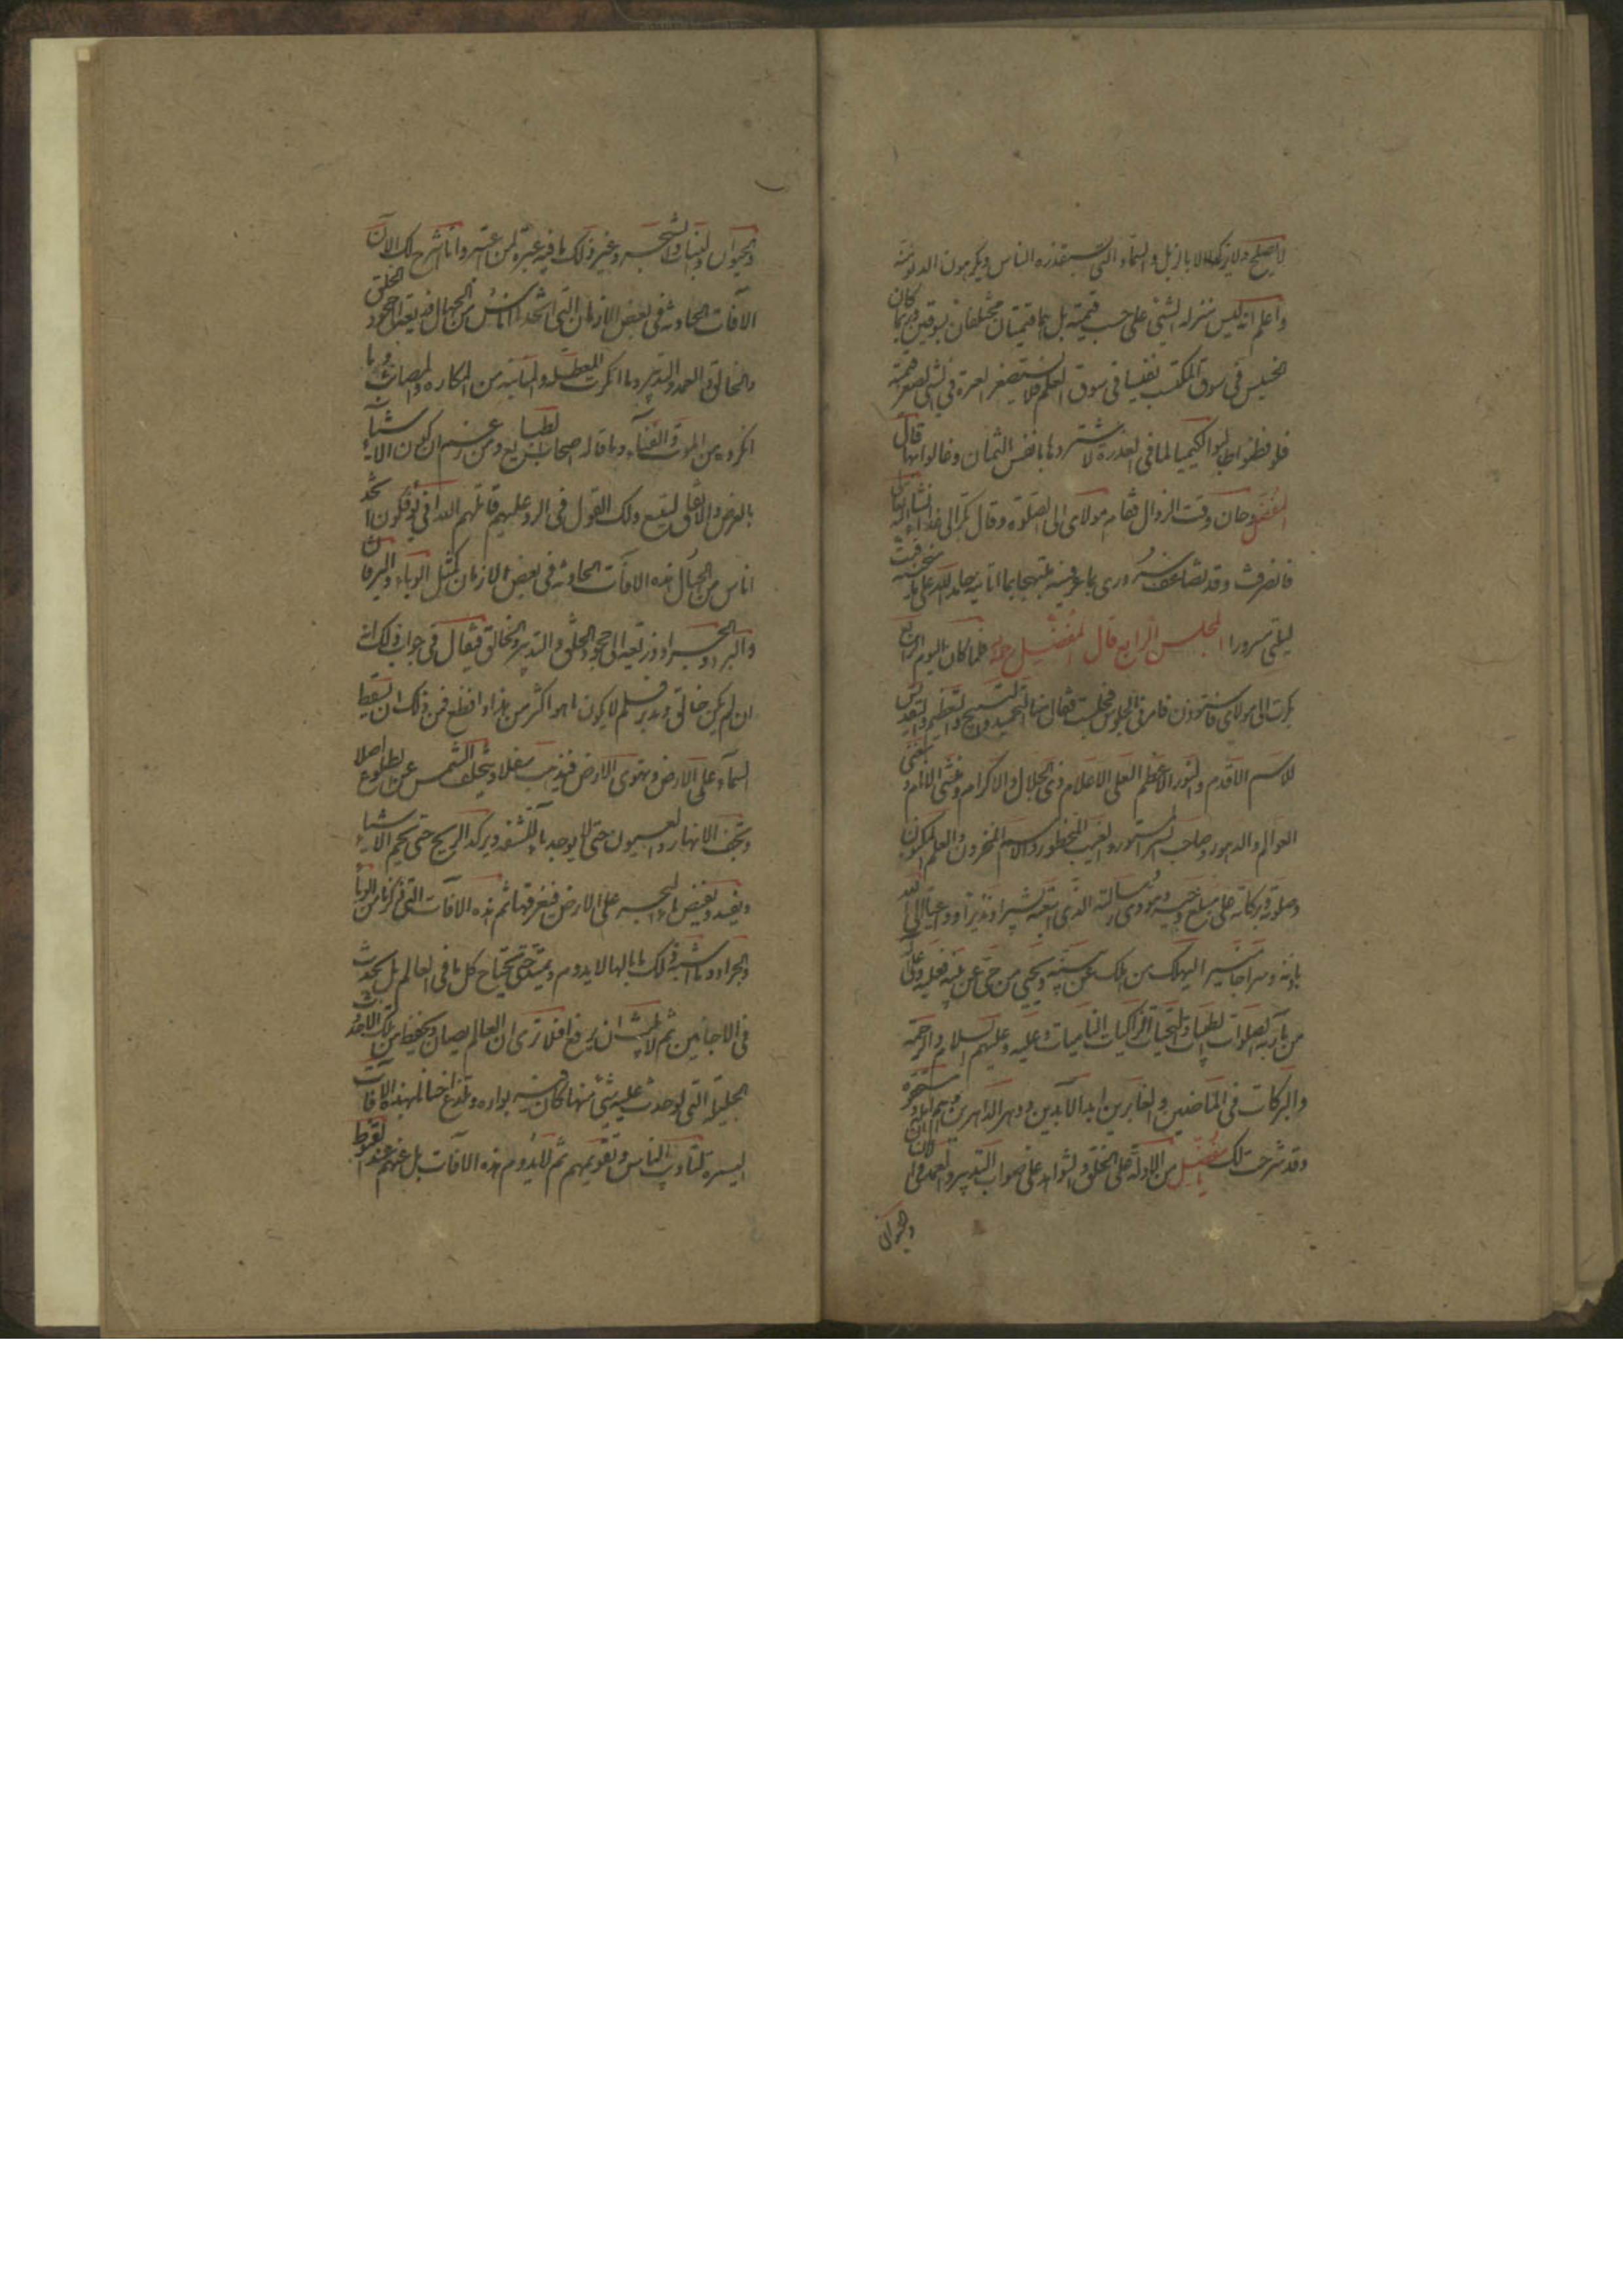 لا يصلح ولا يزكو الا بالزبل والسماد الذي يستقذره الناس ويكرهون الدنو منه
واعلم انه ليس منزلة الشيء على حسب قيمته بل هما قيمتان مختلفتان بسوقين وربما كان
الخسيس في سوق المكتسب نفيسا في سوق العلم فلا تستصغر العبرة في الشيء لصغر قيمته
فلو فطنوا طالبوا الكيميا لما في العذرة لاشتروها بانفس الاثمان وغالوا بها قال
المفضل وحان وقت الزوال فقام مولاي الى الصلوة وقال بكر الي غدا ان شاء الله تعالى
فانصرفت وقد تضاعف سروري بما عرفنيه مبتهجا بما اتانيه حامدا لله على ما منحنيه فبت
ليلتي مسرورا المجلس الرابع قال المفضل فلما كان اليوم الرابع
بكرت الى مولاي فاستوذن لي فامرني بالجلوس فجلست فقال منا التحميد والتسبيح والتعظيم والتقديس
للاسم الاقدم والنور الاعظم العلي العلام ذي الجلال والاكرام ومنشئ الانام ومفني
العوالم والدهور وصاحب السر المستور والغيب المحظور والاسم المخزون والعلم المكنون
وصلوته وبركاته على مبلغ وحيه ومؤدي رسالته الذي ابتعثه بشيرا ونذيرا وداعيا الى الله
باذنه وسراجا منيرا ليهلك من هلك عن بينة ويحيى من حي عن بينة فعليه وعلى آله
من بارئه الصلوات الطيبات والتحيات الزاكيات الناميات وعليه وعليهم السلام والرحمة
والبركات في الماضين والغابرين ابد الآبدين ودهر الداهرين وهم اهله ومستحقوه
وقد شرحت لك يا مفضل من الادلة على الخلق والشواهد على صواب التدبير والعمد في الانسان
والحيوان
والحيوان والنبات والشجر وغير ذلك ما فيه عبرة لمن اعتبر وانا اشرح لك الآن
الآفات الحادثة في بعض الازمان التي اتخذها اناس من الجهال ذريعة الى جحود الخلق
والخالق والعمد والتدبير وما انكرت المعطلة والمنانية من المكاره والمصائب وما
انكروه من الموت والفناء وما قاله اصحاب الطبايع ومن زعم ان كون الاشياء
بالعرض والاتفاق ليتسع ذلك القول في الرد عليهم قاتلهم الله انى يؤفكون اتخذ
اناس من الجهال هذه الآفات الحادثة في بعض الازمان كمثل الوباء واليرقان
والبرد والجراد ذريعة الى جحود الخلق والتدبير والخالق فيقال في جواب ذلك انه
ان لم يكن خالق ومدبر فلم لا يكون ما هو اكثر من هذا وافظع فمن ذلك ان تسقط
السماء على الارض وتهوى الارض فتذهب سفلا وتتخلف الشمس عن الطلوع اصلا
وتجف الانهار والعيون حتى لا يوجد ماء للشفة ويركد الريح حتى يحم الاشياء
ويفسد ويفيض ماء البحر على الارض فيغرقها ثم هذه الآفات التي ذكرنا من الوباء
والجراد وما اشبه ذلك ما بالها لا يدوم ويمتد حتى يجتاح كل ما في العالم بل يحدث
في الاحايين ثم لا يلبث ان يرفع افلا ترى ان العالم يصان ويحفظ من تلك الاحداث
الجليلة التي لو حدث عليه شيء منها كان فيه بواره ويلذع احيانا بهذه الآفات
اليسيرة لتاديب الناس وتقويمهم ثم لا يدوم هذه الآفات بل عنهم عند القنوط